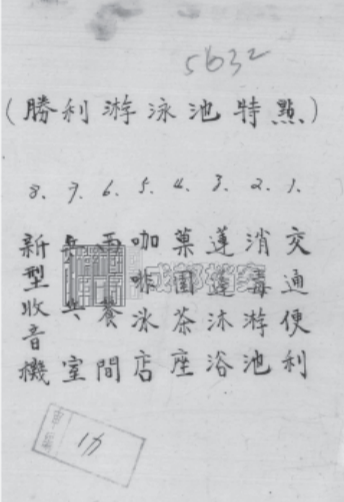 5632
(勝利游泳池特點)
1. 交通便利
2. 消毒游池
3. 蓮蓬沐浴
4. 菓園茶座
5. 咖啡冰店
6. 西餐間
7. 乒乓室
8. 新型收音機
成都档案